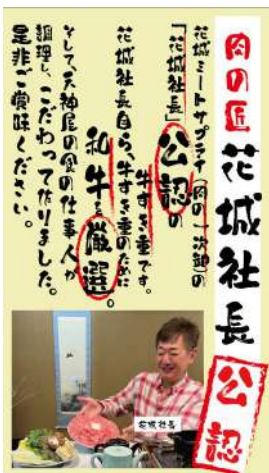 肉の匠 花城社長 公認
花城ミートサプライ(肉の一次卸)の
「花城社長」公認の
牛すき重です。
花城社長自ら、牛すき重のために
和牛を厳選。
そして、天神屋の食の仕事人が
調理し、こだわって作りました。
是非ご賞味ください。
花城社長